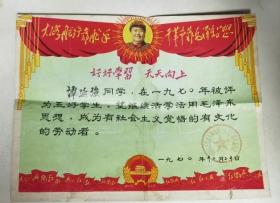 大海航行靠舵手
干革命靠毛泽东思想
好好学习 天天向上
同学，在一九七〇年被评
为五好学生，望继续活学活用毛泽东
思想，成为有社会主义觉悟的有文化
的劳动者。
一九七〇年